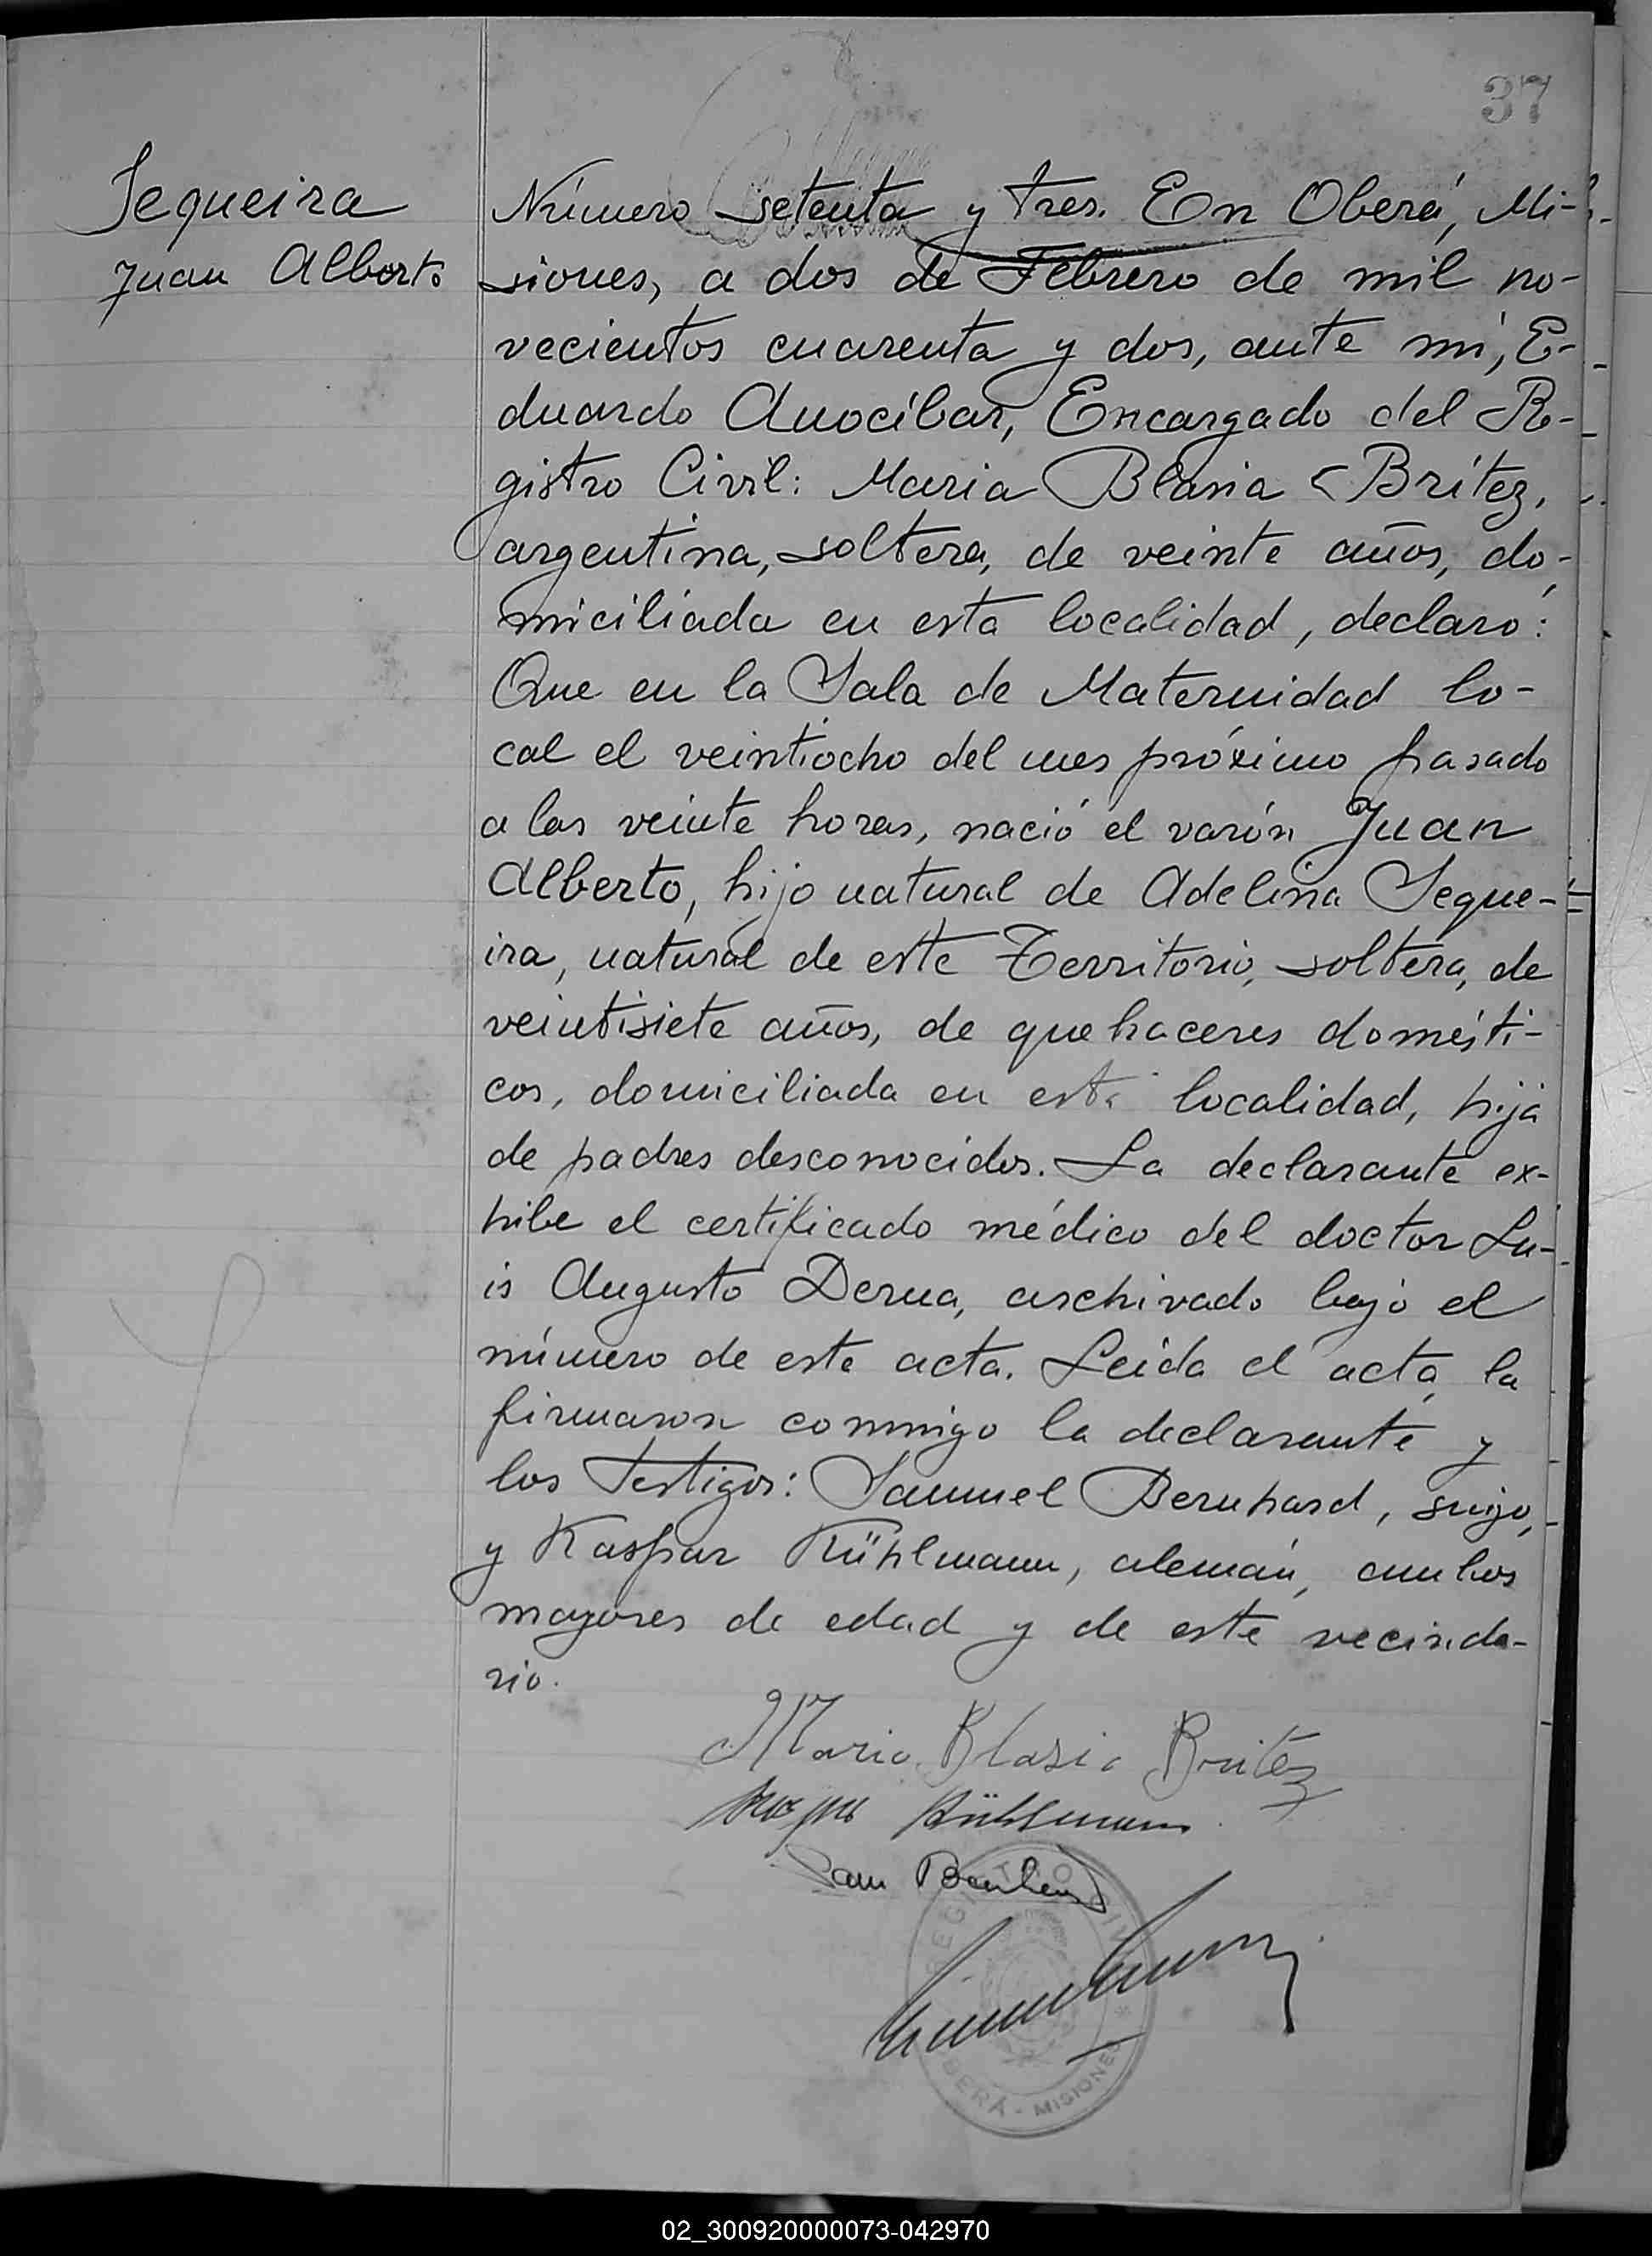 37
Sequeira
Juan Alberto
Número setenta y tres. En Oberá, Mi-
siones, a dos de Febrero de mil no-
vecientos cuarenta y dos, ante mí, E-
duardo Anocíbar, Encargado del Re-
gistro Civil: Maria Blasia Brítez,
argentina, soltera, de veinte años, do-
miciliada en esta localidad, declaró:
Que en la Sala de Maternidad lo-
cal el veintiocho del mes próximo pasado
a las veinte horas, nació el varón Juan
Alberto, hijo natural de Adelina Seque-
ira, natural de este Territorio, soltera, de
veintisiete años, de quehaceres domésti-
cos, domiciliada en esta localidad, hija
de padres desconocidos. La declarante ex-
hibe el certificado médico del doctor Lu-
is Augusto Derna, archivado bajo el
número de este acta. Leída el acta, la
firmaron conmigo la declarante y
los testigos: Samuel Bernhard, suizo,
y Kaspar Kühlmann, alemán, ambos
mayores de edad y de este vecinda-
rio.
Maria Blasia Britez
Kühlmann
Sam Bernhard
REGISTRO CIVIL
OBERÁ - MISIONES
02_300920000073-042970